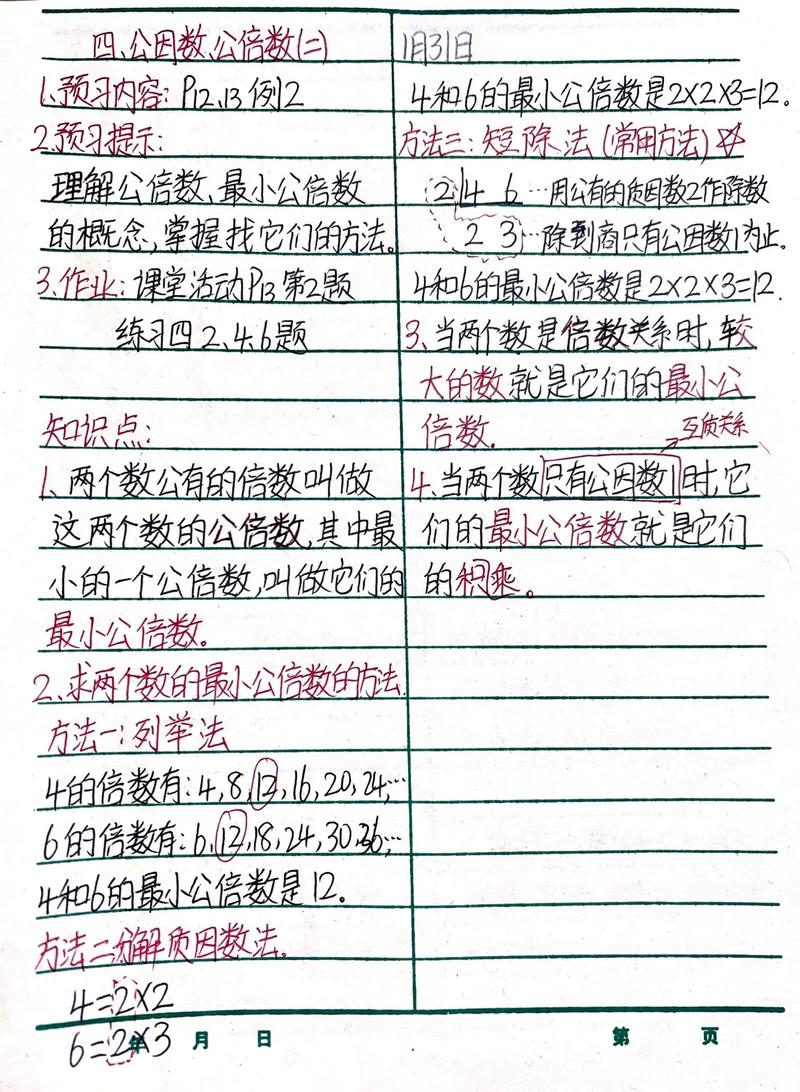 四、公因数、公倍数(二)
1.预习内容: P12、13 例2
2.预习提示:
理解公倍数、最小公倍数
的概念,掌握找它们的方法。
3.作业: 课堂活动P13 第2题
练习四 2、4、6题
知识点:
1、两个数公有的倍数叫做
这两个数的公倍数,其中最
小的一个公倍数,叫做它们的
最小公倍数。
2、求两个数的最小公倍数的方法.
方法一:列举法
4的倍数有: 4,8,12,16,20,24,…
6的倍数有: 6,12,18,24,30,36,…
4和6的最小公倍数是12。
方法二分解质因数法.
4=2×2
6=2×3
年 月 日
1月31日
4和6的最小公倍数是2×2×3=12。
方法三: 短除法(常用方法)
2 4 6 …用公有的质因数2作除数
2 3 …除到商只有公因数1为止.
4和6的最小公倍数是2×2×3=12.
3、当两个数是倍数关系时,较
大的数就是它们的最小公
倍数.
互质关系
4、当两个数只有公因数1时,它
们的最小公倍数就是它们
的积乘。
第 页